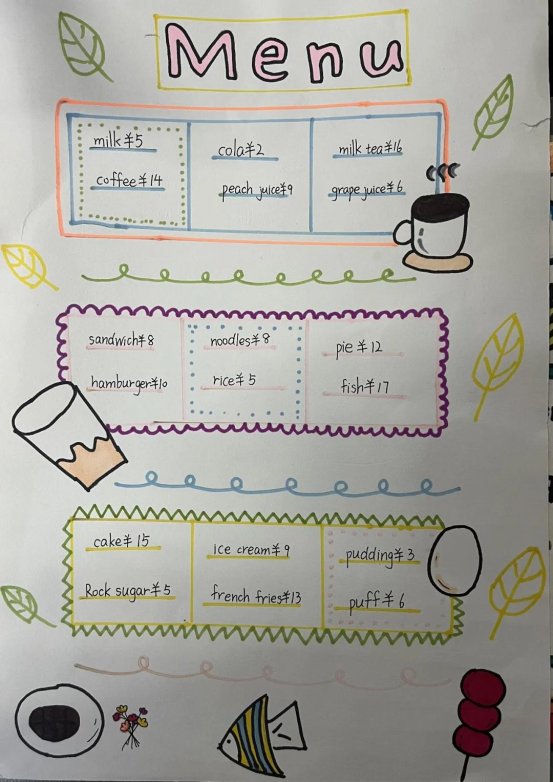 Menu
milk¥5
coffee¥14
cola¥2
peach juice¥9
milk tea¥16
grape juice¥6
sandwich¥8
hamburger¥10
noodles¥8
rice¥5
pie¥12
fish¥17
cake¥15
Rock sugar¥5
ice cream¥9
french fries¥13
pudding¥3
puff¥6